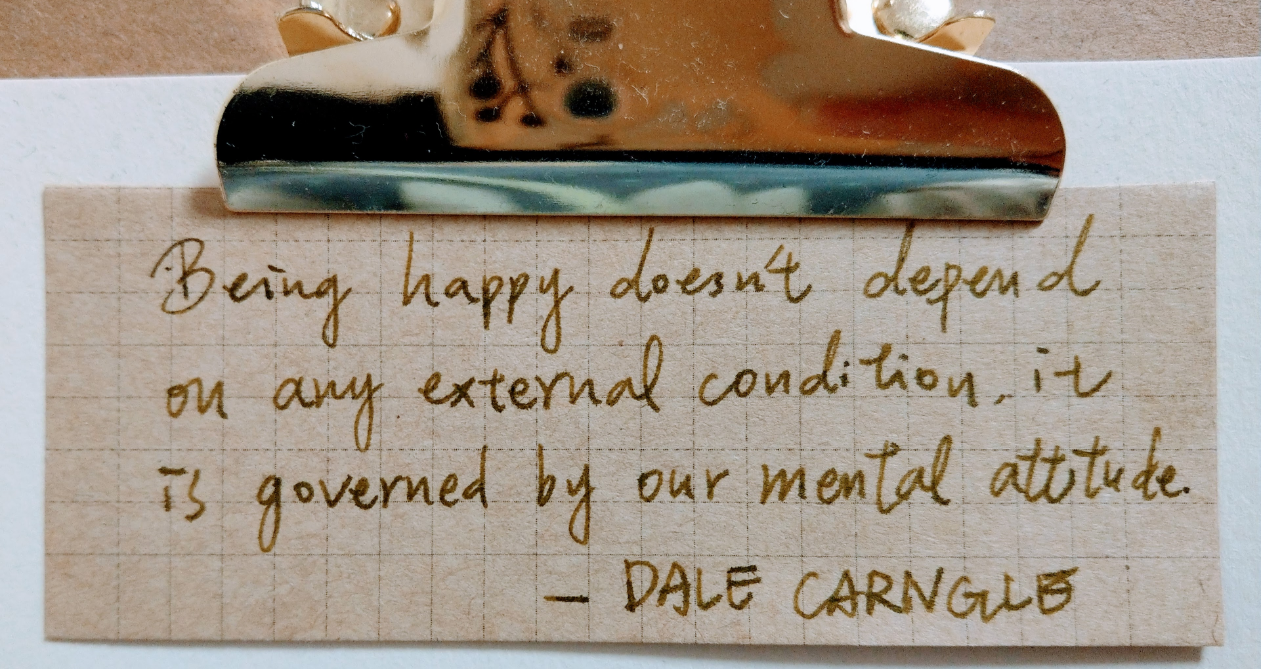 Being happy doesn't depend
on any external condition, it
is governed by our mental attitude.
— DALE CARNGLE